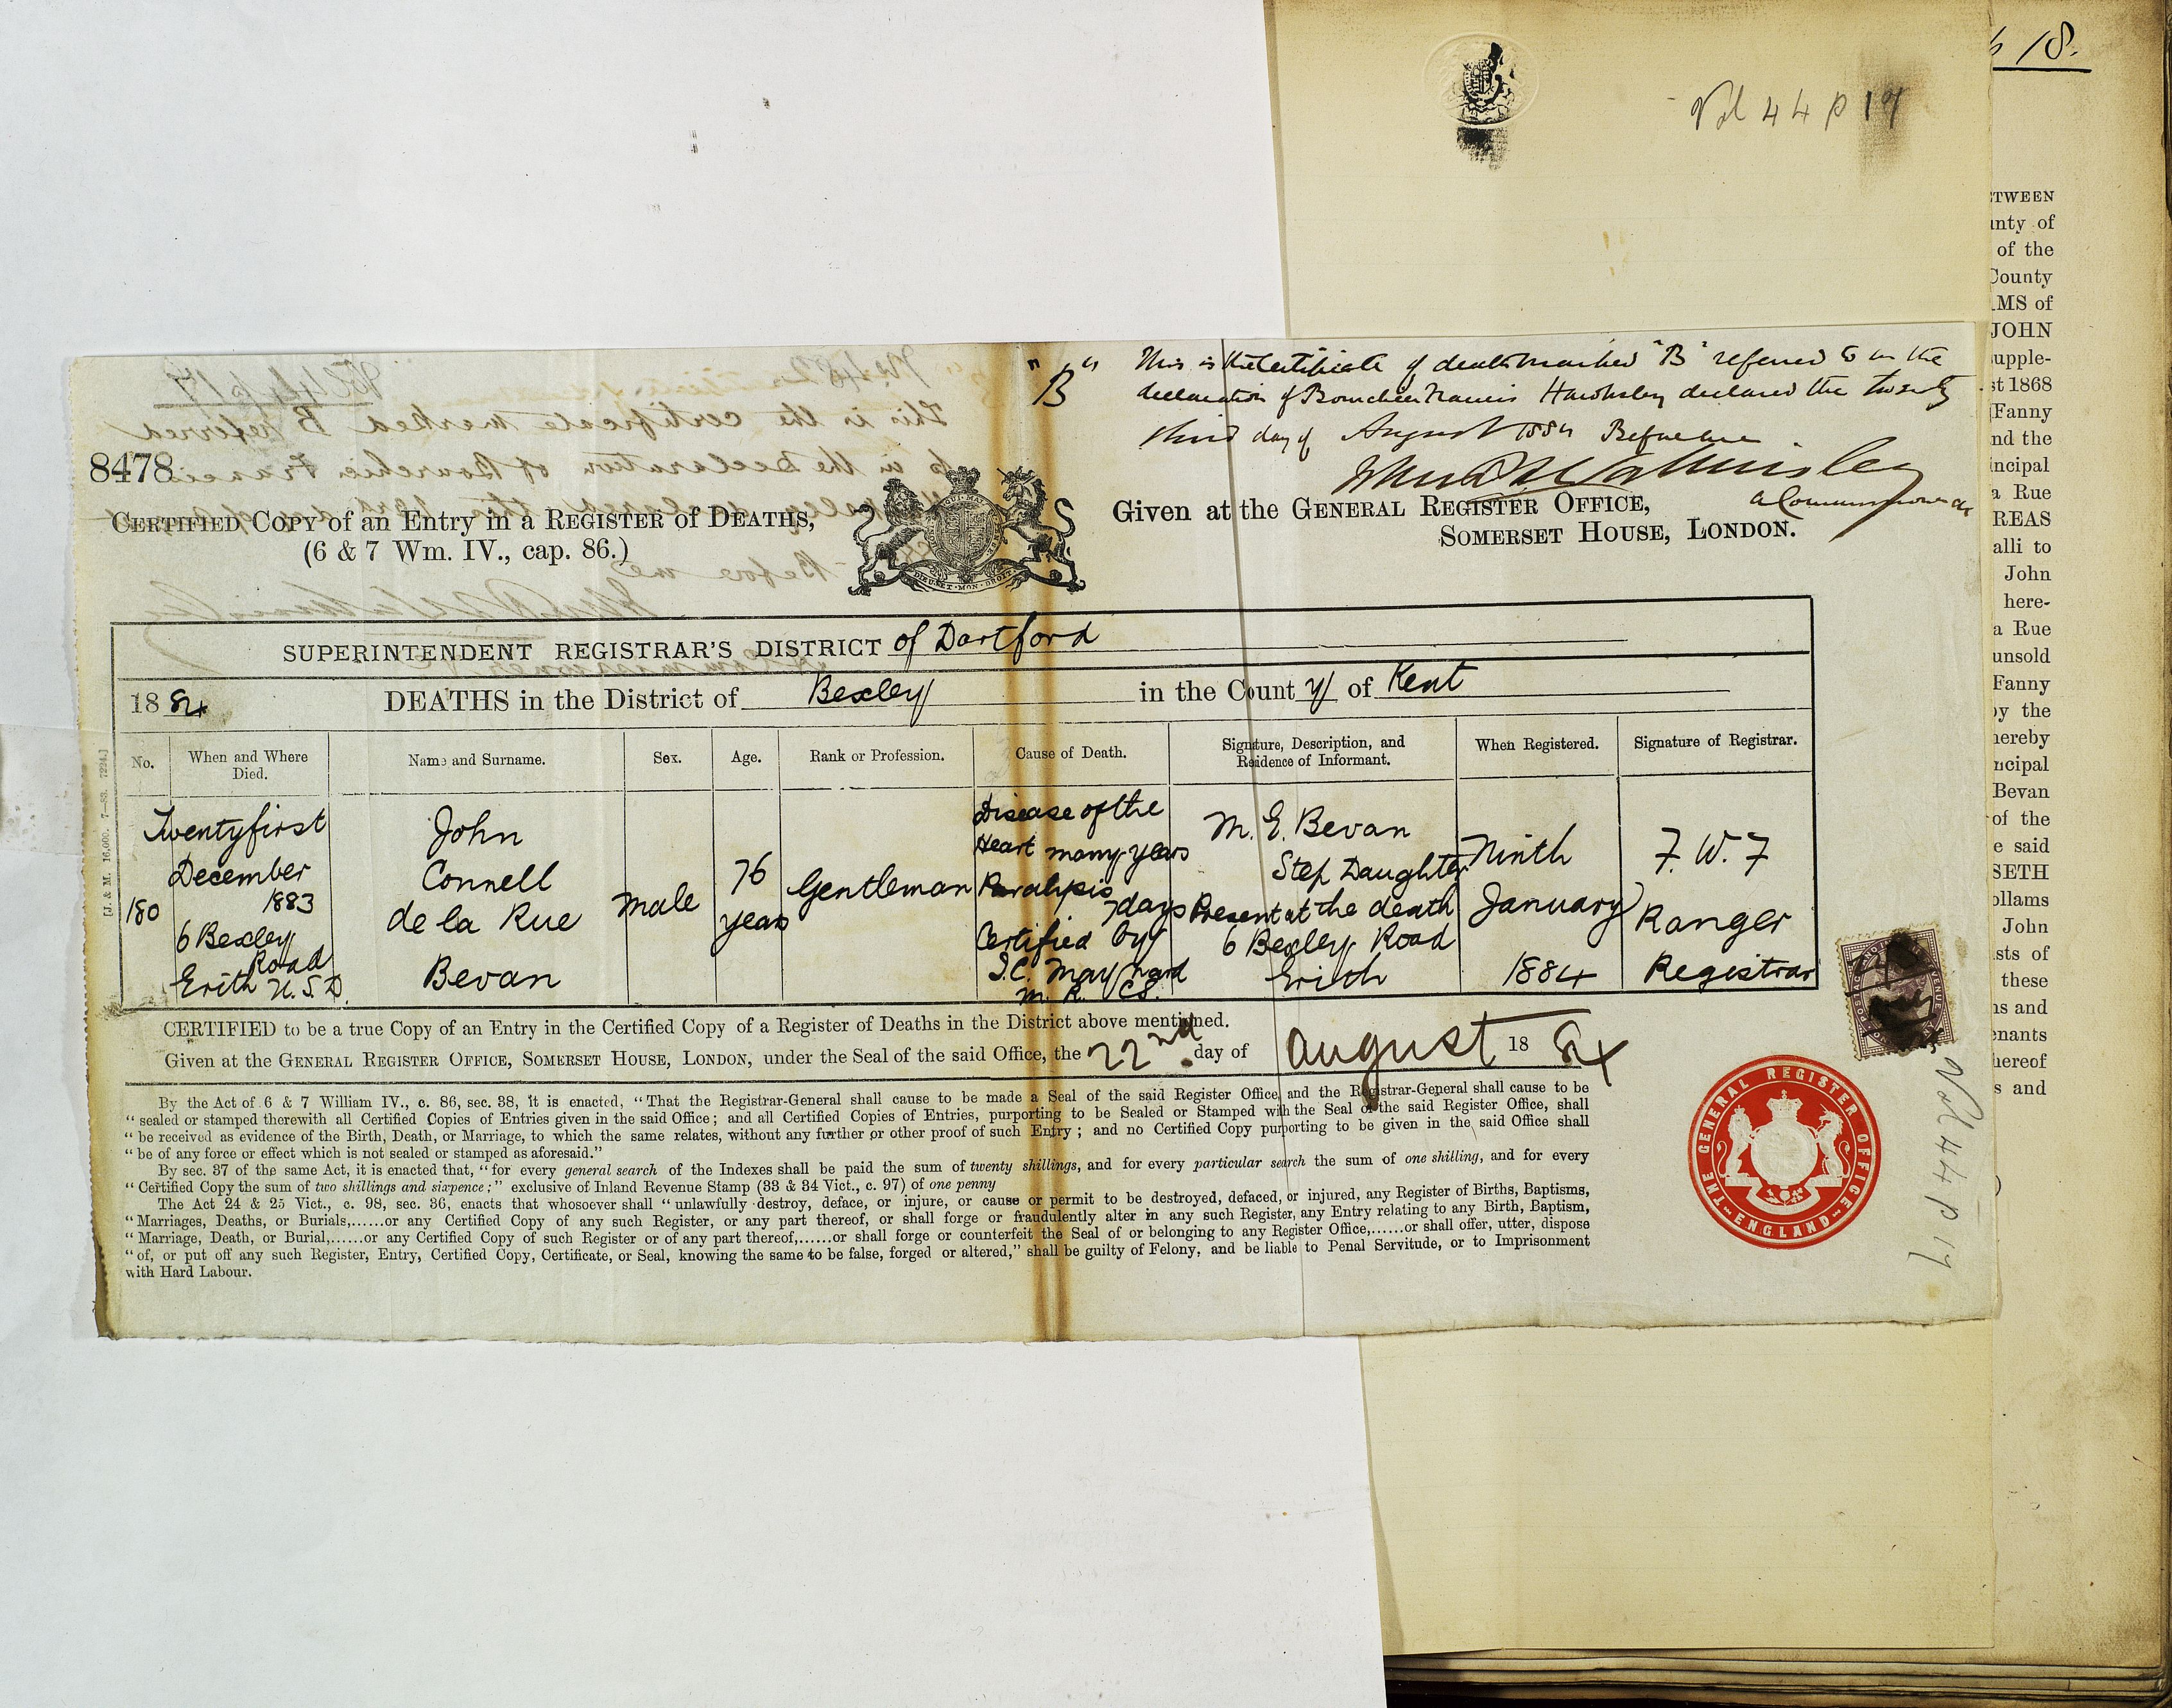 p 18.
Vol 44 p 17
TWEEN
unty of
of the
County
MS of
JOHN
supple-
st 1868
Fanny
nd the
incipal
a Rue
REAS
alli to
John
here-
a Rue
unsold
Fanny
by the
hereby
ncipal
Bevan
of the
e said
SETH
ollams
John
sts of
these
ns and
enants
hereof
s and
"B"
This is the Certificate of death marked "B" referred to in the
declaration of Bourchier Francis Hawksley declared the twenty
third day of August 1884 Before me
A Commissioner &c
Vol 44 p 17
This is the certificate marked B referred
to in the Declaration of Bourchier Francis
Before me
8478
CERTIFIED COPY of an Entry in a REGISTER of DEATHS,
(6 & 7 Wm. IV., cap. 86.)
DIEU ET MON DROIT
Given at the GENERAL REGISTER OFFICE,
SOMERSET HOUSE, LONDON.
SUPERINTENDENT REGISTRAR'S DISTRICT of Dartford
1884 DEATHS in the District of Bexley in the County of Kent
No. When and Where Died. Name and Surname. Sex. Age. Rank or Profession. Cause of Death. Signature, Description, and Residence of Informant. When Registered. Signature of Registrar.
180
Twenty first
December
1883
6 Bexley
Road
Erith U.S.D.
John
Connell
de la Rue
Bevan
Male
76
years
Gentleman
Disease of the
Heart many years
Paralysis
7 days
Certified by
J.C. Maynard
M.R.C.S.
M. E. Bevan
Step Daughter
Present at the death
6 Bexley Road
Erith
Ninth
January
1884
F. W. F
Ranger
Registrar
[J. & M. 16,000. 7—83. 7224.]
CERTIFIED to be a true Copy of an Entry in the Certified Copy of a Register of Deaths in the District above mentioned.
Given at the GENERAL REGISTER OFFICE, SOMERSET HOUSE, LONDON, under the Seal of the said Office, the 22nd day of August 1884
By the Act of 6 & 7 William IV., c. 86, sec. 38, it is enacted, "That the Registrar-General shall cause to be made a Seal of the said Register Office, and the Registrar-General shall cause to be
"sealed or stamped therewith all Certified Copies of Entries given in the said Office; and all Certified Copies of Entries, purporting to be Sealed or Stamped with the Seal of the said Register Office, shall
"be received as evidence of the Birth, Death, or Marriage, to which the same relates, without any further or other proof of such Entry; and no Certified Copy purporting to be given in the said Office shall
"be of any force or effect which is not sealed or stamped as aforesaid."
By sec. 37 of the same Act, it is enacted that, "for every general search of the Indexes shall be paid the sum of twenty shillings, and for every particular search the sum of one shilling, and for every
"Certified Copy the sum of two shillings and sixpence;" exclusive of Inland Revenue Stamp (33 & 34 Vict., c. 97) of one penny
The Act 24 & 25 Vict., c. 98, sec. 36, enacts that whosoever shall "unlawfully destroy, deface, or injure, or cause or permit to be destroyed, defaced, or injured, any Register of Births, Baptisms,
"Marriages, Deaths, or Burials,......or any Certified Copy of any such Register, or any part thereof, or shall forge or fraudulently alter in any such Register, any Entry relating to any Birth, Baptism,
"Marriage, Death, or Burial,......or any Certified Copy of such Register or of any part thereof,......or shall forge or counterfeit the Seal of or belonging to any Register Office,......or shall offer, utter, dispose
"of, or put off any such Register, Entry, Certified Copy, Certificate, or Seal, knowing the same to be false, forged or altered," shall be guilty of Felony, and be liable to Penal Servitude, or to Imprisonment
with Hard Labour.
THE GENERAL REGISTER OFFICE
ENGLAND
Vol 44 p 17